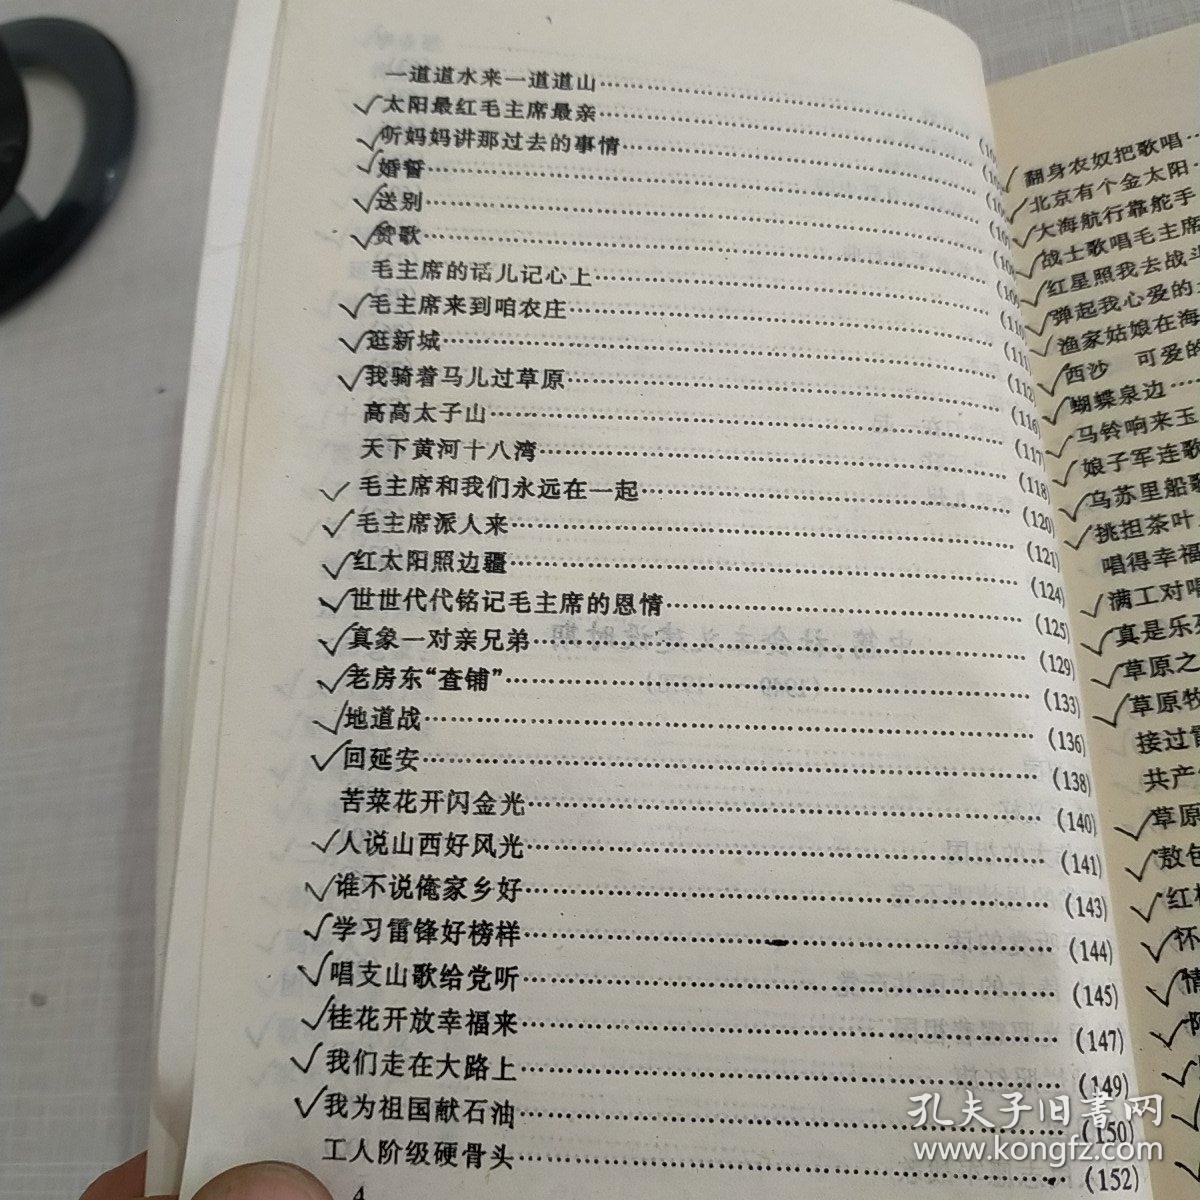 一道道水来一道道山
太阳最红毛主席最亲
听妈妈讲那过去的事情
婚誓
送别
赞歌
毛主席的话儿记心上
毛主席来到咱农庄
逛新城
我骑着马儿过草原
高高太子山
天下黄河十八湾
毛主席和我们永远在一起
毛主席派人来
红太阳照边疆
世世代代铭记毛主席的恩情
真象一对亲兄弟
老房东“查铺”
地道战
回延安
苦菜花开闪金光
人说山西好风光
谁不说俺家乡好
学习雷锋好榜样
唱支山歌给党听
桂花开放幸福来
我们走在大路上
我为祖国献石油
工人阶级硬骨头
(110)
(111)
(112)
(116)
(117)
(118)
(120)
(121)
(124)
(125)
(129)
(133)
(136)
(138)
(140)
(141)
(143)
(144)
(145)
(147)
(149)
(150)
(152)
4
翻身农奴把歌唱
北京有个金太阳
大海航行靠舵手
战士歌唱毛主席
红星照我去战斗
弹起我心爱的
渔家姑娘在海
西沙 可爱的
蝴蝶泉边
马铃响来玉
娘子军连歌
乌苏里船歌
挑担茶叶
唱得幸福
满工对唱
真是乐
草原之
草原牧
接过雷
共产
草原
敖包
红
怀
情
孔夫子旧书网
www.kongfz.com